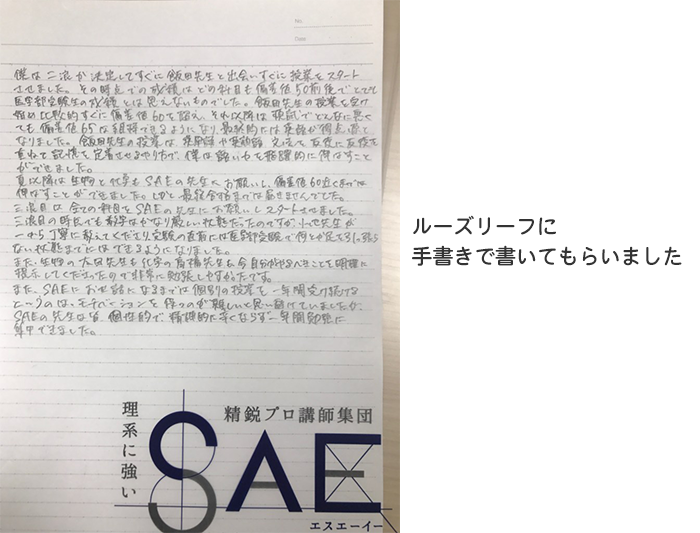 No.
Date
僕は二浪が決定してすぐに飯田先生と出会いすぐに授業をスタート
させました。その時点での成績はどの科目も偏差値50前後でとても
医学部受験生の成績とは思えないものでした。飯田先生の授業を受け
始め比較的すぐに偏差値60を超え、それ以降は模試でどんなに悪く
ても偏差値65は維持できるようになり最終的には英語が得点源と
なりました。飯田先生の授業は、英単語や英熟語、文法を反復に反復を
重ねて記憶を定着させるやり方で、僕は語い力を飛躍的に伸ばすこと
ができました。
夏以降は生物と化学もSAEの先生へお願いし、偏差値60近くまでは
伸ばすことができました。しかし最終合格までは届きませんでした。
三浪目は全ての科目をSAEの先生にお願いしスタートさせました。
三浪目の時点でも数学はかなり厳しい状態だったのですが、小池先生が
一から丁寧に教えてくださり受験の直前には医学部受験で何とか足を引っ張ら
ない状態までにはできるようになりました。
また、生物の大塚先生も化学の高橋先生も今自分がやるべきことを明確に
提示してくださったので非常に勉強しやすかったです。
また、SAEにお世話になるまでは個別の授業を一年間受け続ける
というのは、モチベーションを保つのが難しいと思い避けていましたが、
SAEの先生は皆、個性的で、精神的に辛くならず一年間勉強に
集中できました。
精鋭プロ講師集団
理系に強い
SAE
エスエーイー
ルーズリーフに
手書きで書いてもらいました